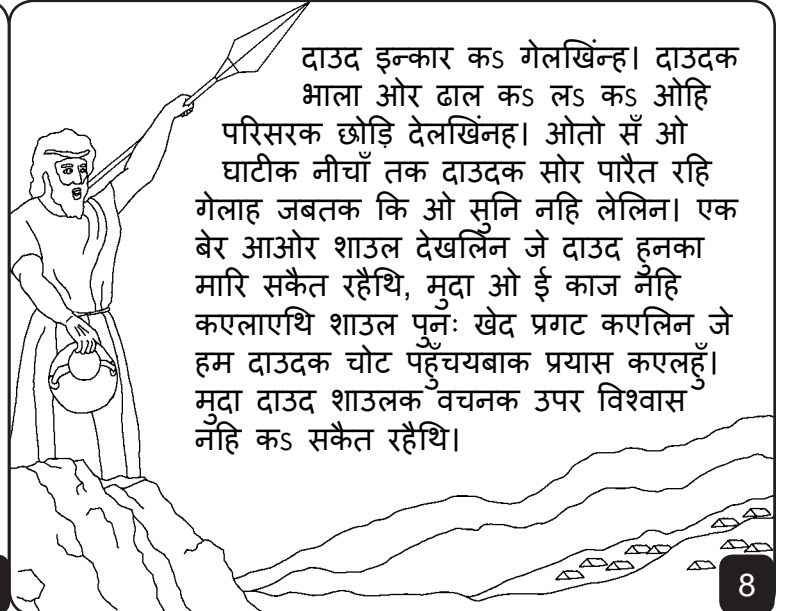 दाउद इन्कार कऽ गेलखिंन्ह। दाउदक
भाला ओर ढाल कऽ लऽ कऽ ओहि
परिसरक छोड़ि देलखिंनह। ओतो सँ ओ
घाटीक नीचाँ तक दाउदक सोर पारैत रहि
गेलाह जबतक कि ओ सुनि नहि लेलिन। एक
बेर आओर शाउल देखलिन जे दाउद हुनका
मारि सकैत रहैथि, मुदा ओ ई काज नहि
कएलाएथि शाउल पुनः खेद प्रगट कएलिन जे
हम दाउदक चोट पहुँचयबाक प्रयास कएलहुँ।
मुदा दाउद शाउलक वचनक उपर विश्वास
नहि कऽ सकैत रहैथि।
8